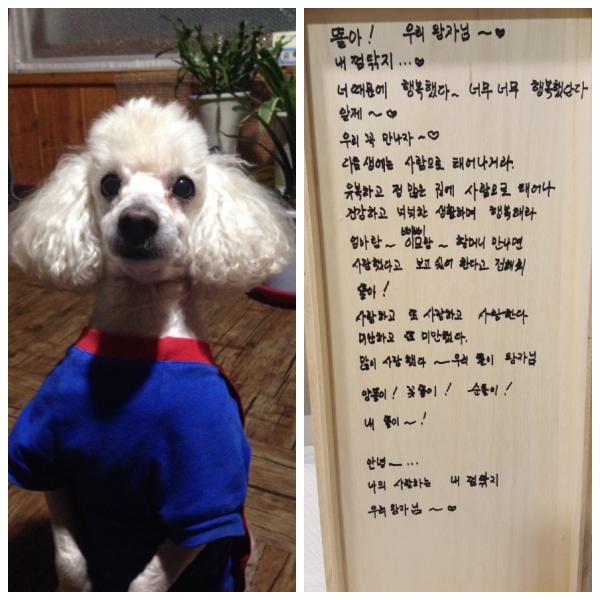 똘아! 우리 왕자님 ~♡
내 껌딱지...♡
너 때문에 행복했다~ 너무 너무 행복했단다
알제 ~♡
우리 꼭 만나자~♡
다음 생에는 사람으로 태어나거라.
유복하고 정 많은 집에 사람으로 태어나
건강하고 넉넉한 생활하며 행복해라
엄마랑~ 이모랑~ 할머니 만나면
사랑했다고 보고 싶어 한다고 전해줘
똘아!
사랑하고 또 사랑하고 사랑한다
미안하고 또 미안했다.
많이 사랑했다 ~ 우리 똘이 왕자님
꽃똘이! 순똘이!
내 똘이~!
안녕~...
나의 사랑하는 내 껌딱지
우리 왕자님 ~♡